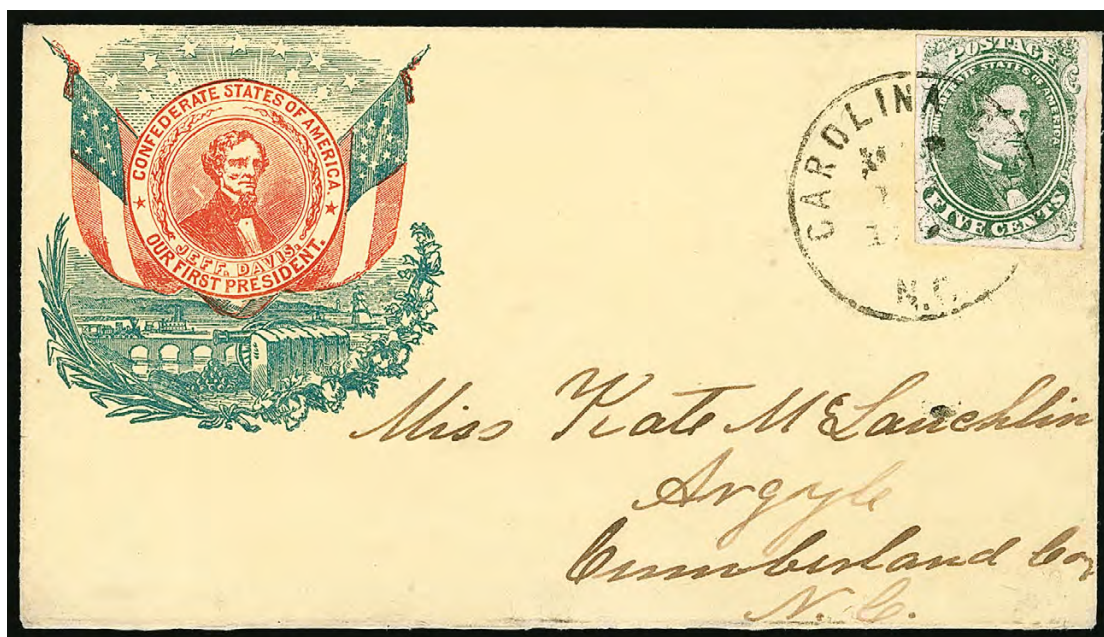 CONFEDERATE STATES OF AMERICA.
JEFF. DAVIS.
OUR FIRST PRESIDENT.
CAROLINA
N.C.
POSTAGE
STATES OF AMERICA
FIVE CENTS
Miss Kate McLauchlin
Argyle
Cumberland Co
N. C.